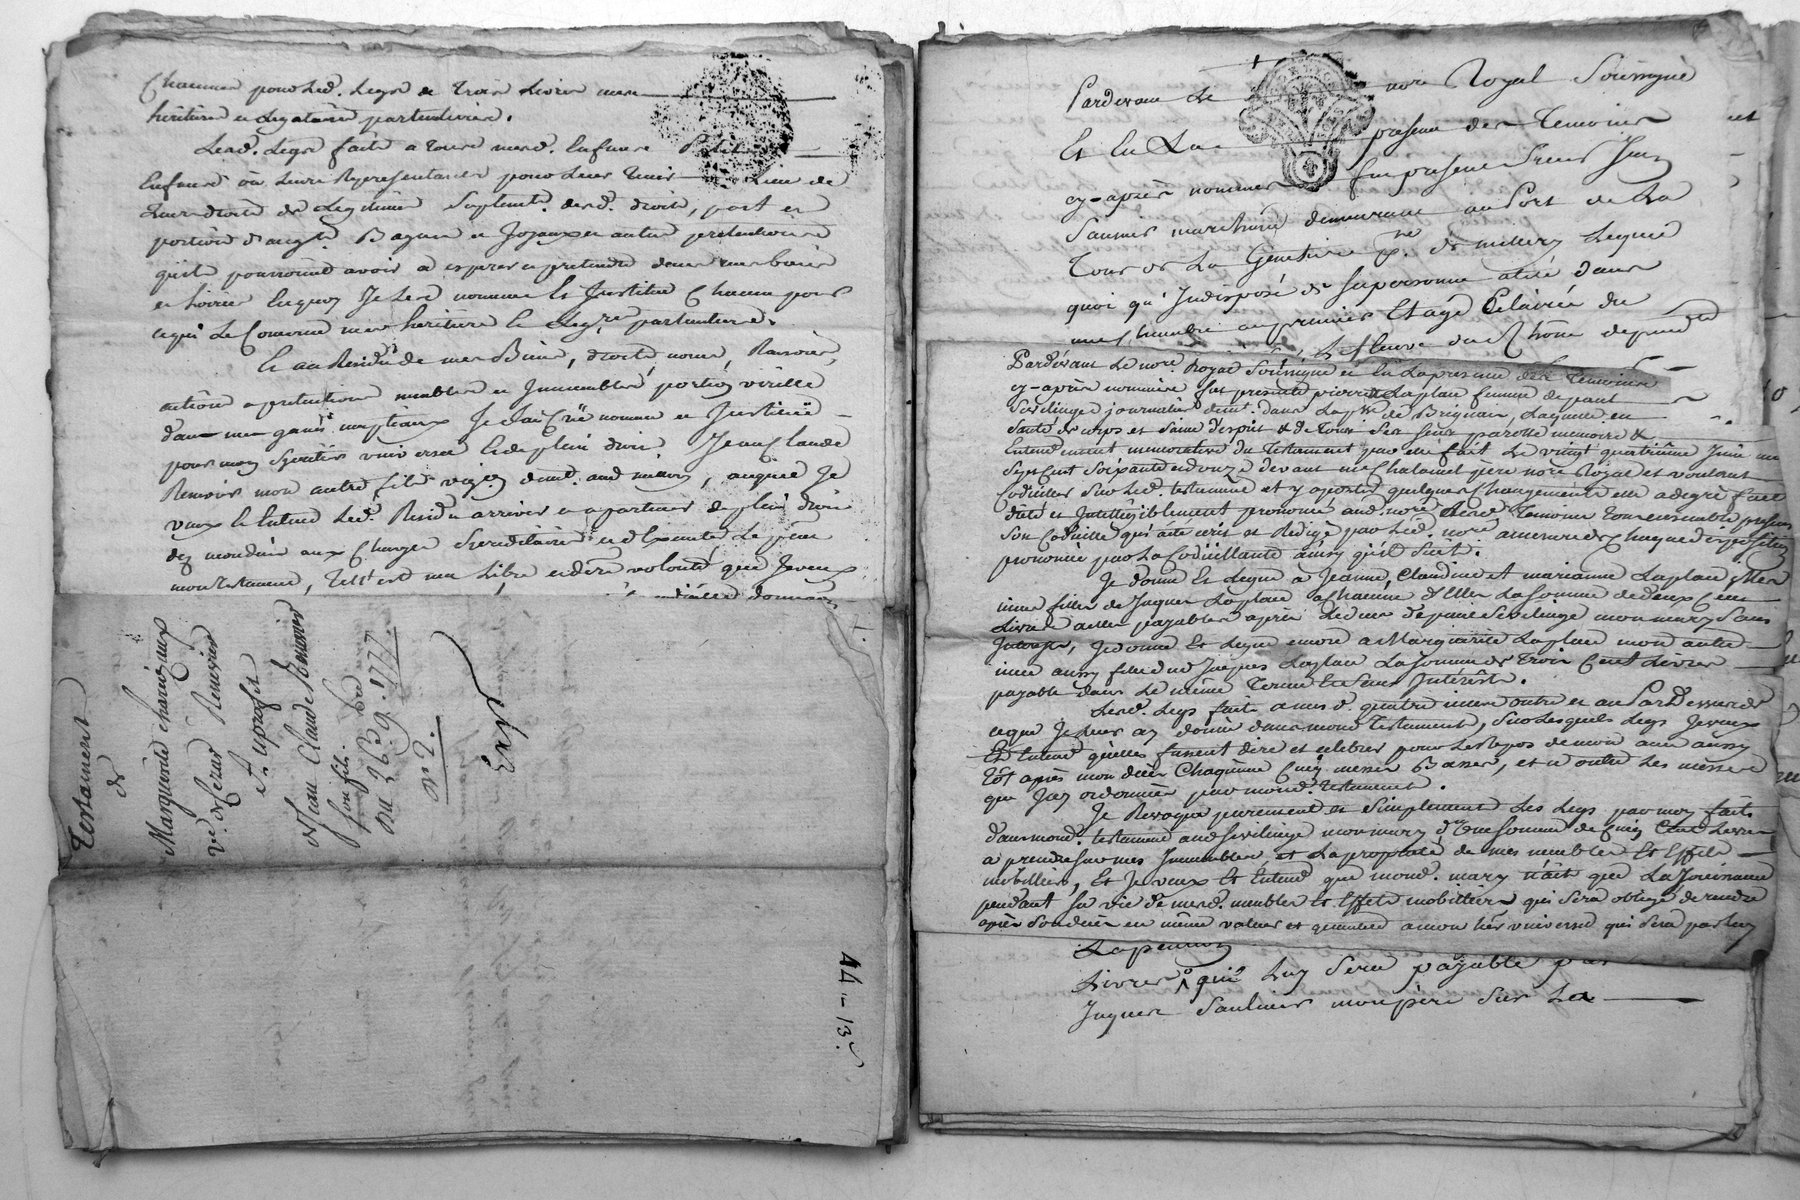 Chacune pour led. legs de trois livres mes
héritiers et légataires particuliers.
Lesd. legs faits a tous mesd. Enfans Petits
Enfans ou leurs Representans pour leur tenir Lieu de
leurs droits de Légitime Suplemt. desd. droits, part et
portions d'augt. Bagues et Joyaux et autres prétentions
qu'ils pourroient avoir à esperer et pretendre dans mes biens
et hoirie En quoy Je les nomme Et Institue Chacun pour
ce qui Le Concerne mes héritiers Et Leg.res particuliers.
Et au Residu de mes Biens, droits, noms, Raisons,
actions et pretentions meubles et Immeubles, portion virille
dans mes gains nuptiaux Je fais Crée nomme et Institue
pour mon héritier universel Et de plein droit Jean Claude
Renevier mon autre fils demt. aud millery, auquel Je
veux Et Entend led. Residu arriver et apartenir de plein droit
dez mon décès aux Charges héréditaires et d'Executer Le pnt
mon testament, Tel est ma Libre et dére volonté que Je veux
Testament
de
Marguerite charezieux
ve. de Cezar Renevier
En uprofit
de Jean Claude Renevier
son fils.
Du 26 9bre 1777.
N° 2.
Exp
AA-13.
Pardevant Le nore Royal Soussigné
Et En La presence des Temoins
cy-après nommés fut present Sieur Jean
Saunier marchand demeurant au Port de La
Tour de La Genetière psse. de millery Lequel
quoi qu'Indisposé de sa personne alité dans
une Chambre au premier Etage Eclairée du
Le fleuve du Rhône
Pardevant Le nore Royal Soussigné et En La presence des Temoins
cy-après nommés fut presente pierrette Laplace femme de paul
Sevelinge journalier demt. dans La psse. de Brignais, Laquelle en
Santé de corps et Saine d'esprit & de tous ses sens parolle memoire &
Entendement memorative du Testament par elle fait Le vingt quatrième Juin mil
Sept Cent Soixante et onze devant me Chatanet père nore Royal et voulant
Codiciller Sur Led. testament et y aporter quelques Changements elle a de gré fait
dicté et Intelligiblement prononcé aud. nore Et Temoins tous ensemble presens
Son Codicille qui a été ecrit et Redigé par Led. nore a mesure de chaque disposition
prononcée par La Codicillante ainsy qu'il Suit.
Je donne Et Legue à Jeanne, Claudine et marianne Laplace Mes
nièces filles de Jaques Laplace a Chacune d'Elles La Somme de deux Cent
Livres a elles payables après Le décès de paul Sevelinge mon mary Sans
Intérêts, Je donne Et Legue encore a Marguerite Laplace mon autre
nièce aussy fille dud Jaques Laplace La Somme de Trois Cent Livres
payable dans Le même Terme Et Sans Intérêts.
Lesd. Legs faits a mesd. quatre nièces outre et au Par Dessus de
ce que Je Leur ay donné dans mond Testament, Sur Lesquels Legs Je veux
Et Entend qu'elles fassent dire et celebrer pour Le Repos de mon ame aussy
Tôt après mon décès Chaqu'une Cinq messes Basses, et ce outre Les messes
que J'ay ordonnées par mond. testament.
Je Revoque purement et Simplement Les Legs par moy faits
dans mond. testament aud Sevelinge mon mary d'une Somme de Cinq Cent Livres
a prendre Sur mes Immeubles, et La propriété de mes meubles Et Effets
mobilliers, Et Je veux Et Entend que mond. mary n'ait que La Jouissance
pendant Sa vie de mesd. meubles Et Effets mobilliers qui Sera obligé de rendre
après Son décès en même valeur et quantité a mon her. universel qui Sera par Luy
La pension
Livres qui Luy Sera payable par
Jaques Saulnier mon père Sur La